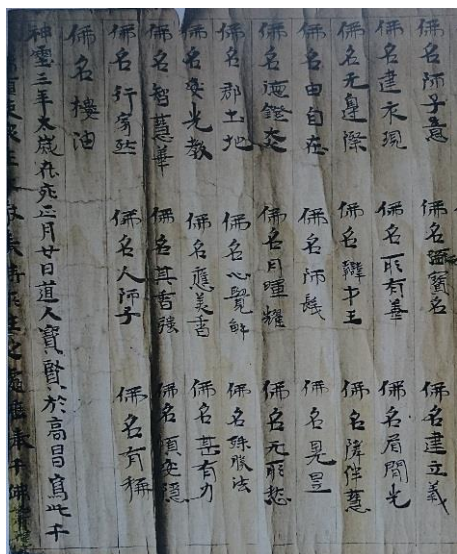 佛名師子意 佛名彌寶名 佛名建立義
佛名建求現 佛名形有善 佛名眉間光
佛名无邊際 佛名辯才王 佛名降伴慧
佛名由自在 佛名師髮 佛名晃昱
佛名德鎧 佛名月瞳耀 佛名无形愁
佛名郡土地 佛名心覺解 佛名勝法
佛名炎光教 佛名應美香 佛名甚有力
佛名智慧華 佛名其音强 佛名順安隱
佛名行家 佛名人師子 佛名有稱
佛名樓油
神璽三年太歲在亥正月廿日道人寶賢於高昌寫此千
生之處 奉千佛